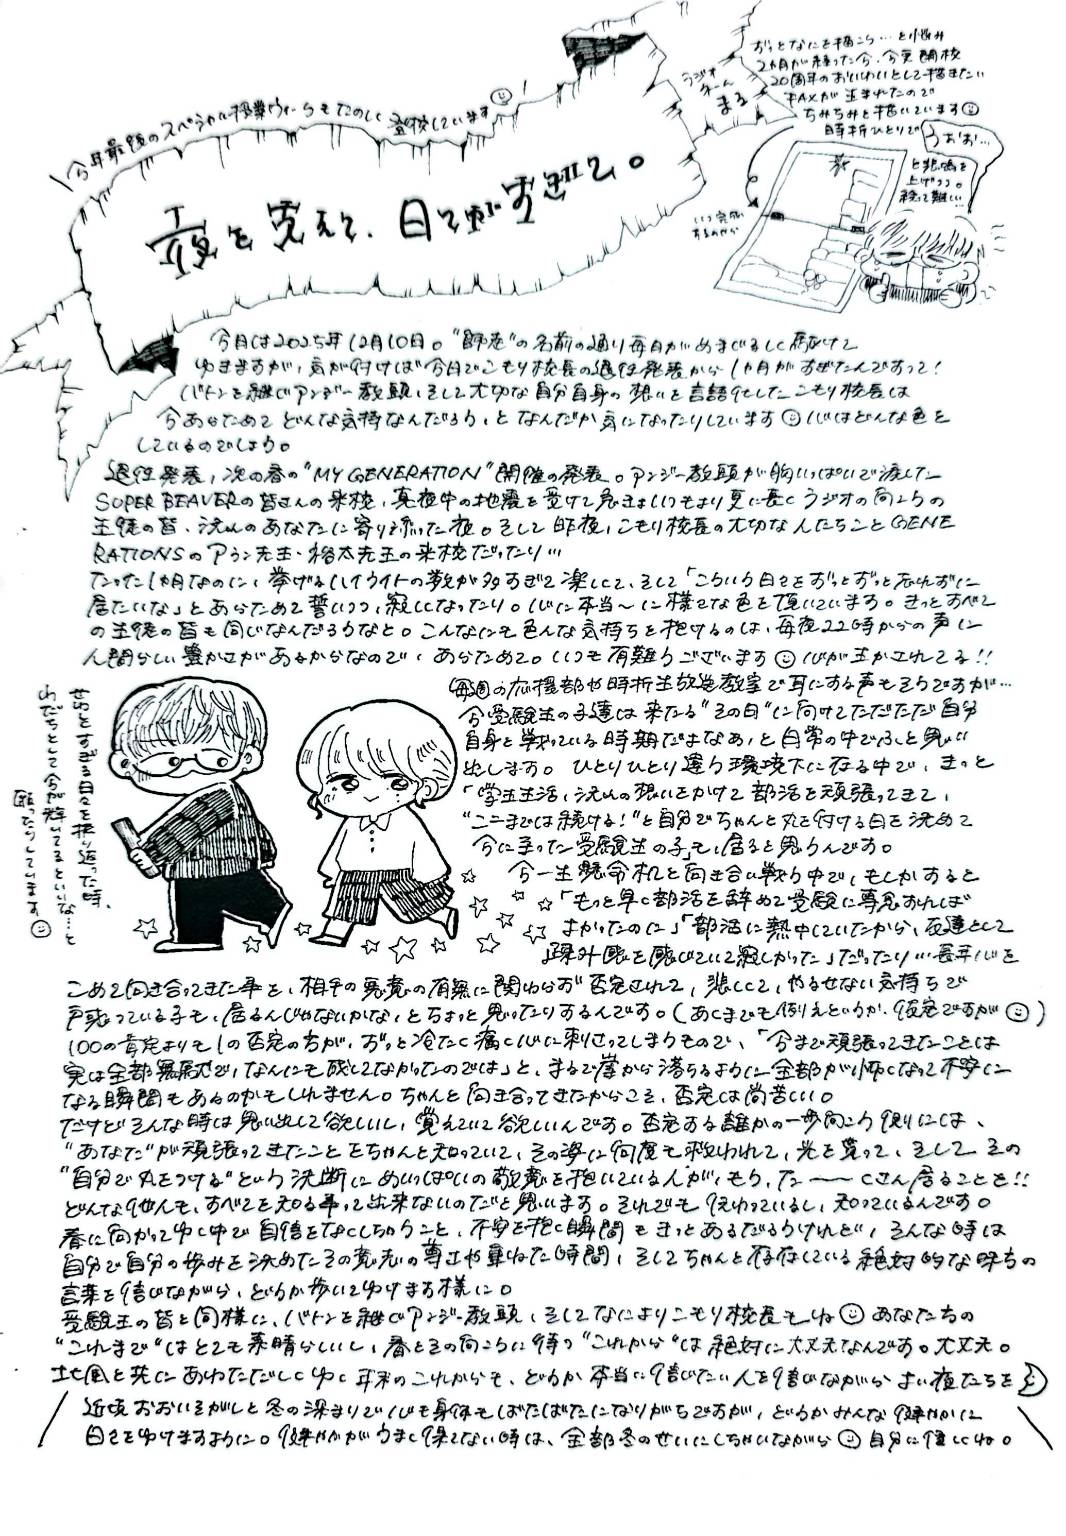 今年最後のスペシャル授業ウィークもたのしく登校しています
夜を越えて、日々がすぎて。
ラジオ
ネーム
まる
ずっとなにを描こう…と悩み
2カ月が経った今、今更開校
20周年のおいわいとして描きたい
FAXが生まれたので
ちみちみと描いています
時折ひとりで
うおお…
と悲鳴を
上げつつ。
絵って難しい…
いつ完成
するのやら
今日は2025年12月10日。"師走"の名前の通り毎日がめまぐるしく駆けて
ゆきますが、気が付けば今日でこもり校長の退任発表から1カ月がすぎたんですって!
バトンを継ぐアンジー教頭、そして大切な自分自身の想いを言語化したこもり校長は
今あらためてどんな気持なんだろう、となんだか気になったりしています 心はどんな色を
しているのでしょう。
退任発表、次の春の"MY GENERATION"開催の発表。アンジー教頭が胸いっぱいで渡した
SUPER BEAVERの皆さんの来校、真夜中の地震を受けて急きょいつもより更に長くラジオの向こうの
生徒の皆、沢山のあなたに寄り添った夜。そして昨夜、こもり校長の大切な人たちことGENE
RATIONSのアラン先生・裕太先生の来校だったり…
たった1カ月なのに、挙げるハイライトの数が多すぎて楽しくて、そして「こういう日々をずっとずっと忘れずに
居たいな」とあらためて誓いつつ、寂しくなったり。心に本当〜に様々な色を頂いています。きっとすべて
の生徒の皆も同じなんだろうなと。こんなにも色んな気持ちを抱けるのは、毎夜22時からの声に
人間らしい豊かさがあるからなので、あらためて。いつも有難うございます 心が生かされてる!!
せわとすぎる日々を振り返った時、
わだちとして今が輝いてるといいな…と
願ったりしています
毎週の応援部や時折生放送教室で耳にする声もそうですが…
今受験生の子達は来たる"その日"に向けてただただ自分
自身と戦っている時期だよなあ、と日常の中でふと思い
出します。ひとりひとり違う環境下に在る中で、きっと
「学生生活、沢山の想いをかけて部活を頑張ってきて、
"ここまでは続ける!"と自分でちゃんと丸を付ける日を決めて
今に至った受験生の子」も、居ると思うんです。
今一生懸命机と向き合い戦う中で、もしかすると
「もっと早く部活を辞めて受験に専念すれば
よかったのに」「部活に熱中していたから、友達として
疎外感を感じていて寂しかった」だったり…長年心を
こめて向き合ってきた事を、相手の悪意の有無に関わらず否定されて、悲しくて、やるせない気持ちで
戸惑っている子も、居るんじゃないかな、とちょっと思ったりするんです。(あくまでも例えというか、仮定ですが)
100の肯定よりも1の否定の方が、ずっと冷たく痛く心に刺さってしまうもので、「今まで頑張ってきたことは
実は全部無駄で、なんにも残してなかったのでは」と、まるで崖から落ちるように全部が怖くなって不安に
なる瞬間もあるのかもしれません。ちゃんと向き合ってきたからこそ、否定は尚苦しい。
だけどそんな時は思い出して欲しいし、覚えていて欲しいんです。否定する誰かの一歩向こう側には、
"あなた"が頑張ってきたことをちゃんと知っていて、その姿に何度も救われて、光を貰って、そしてその
"自分で丸をつける"という決断にめいっぱいの敬意を抱いている人が、もう、た〜〜くさん居ることを!!
どんな他人も、すべてを知る事って出来ないのだと思います。それでも伝わっているし、知っているんです。
春に向かってゆく中で自信をなくしちゃうこと、不安を抱く瞬間もきっとあるだろうけれど、そんな時は
自分で自分の歩みを決めたその覚悟の尊さや重ねた時間、そしてちゃんと存在している絶対的な味方の
言葉を信じながら、どうか歩いてゆけます様に。
受験生の皆と同様に、バトンを継ぐアンジー教頭、そしてなによりこもり校長もね あなたたちの
"これまで"はとても素晴らしいし、春とその向こうに待つ"これから"は絶対に大丈夫なんです。大丈夫。
北風と共にあわただしくゆく年末のこれからも、どうか本当に信じたい人を信じながらよい夜たちを
近頃おおいそがしと冬の深まりで心も身体もばたばたになりがちですが、どうかみんな健やかに
日々をゆけますように。健やかがうまく保てない時は、全部冬のせいにしちゃいながら 自分に優しくね。